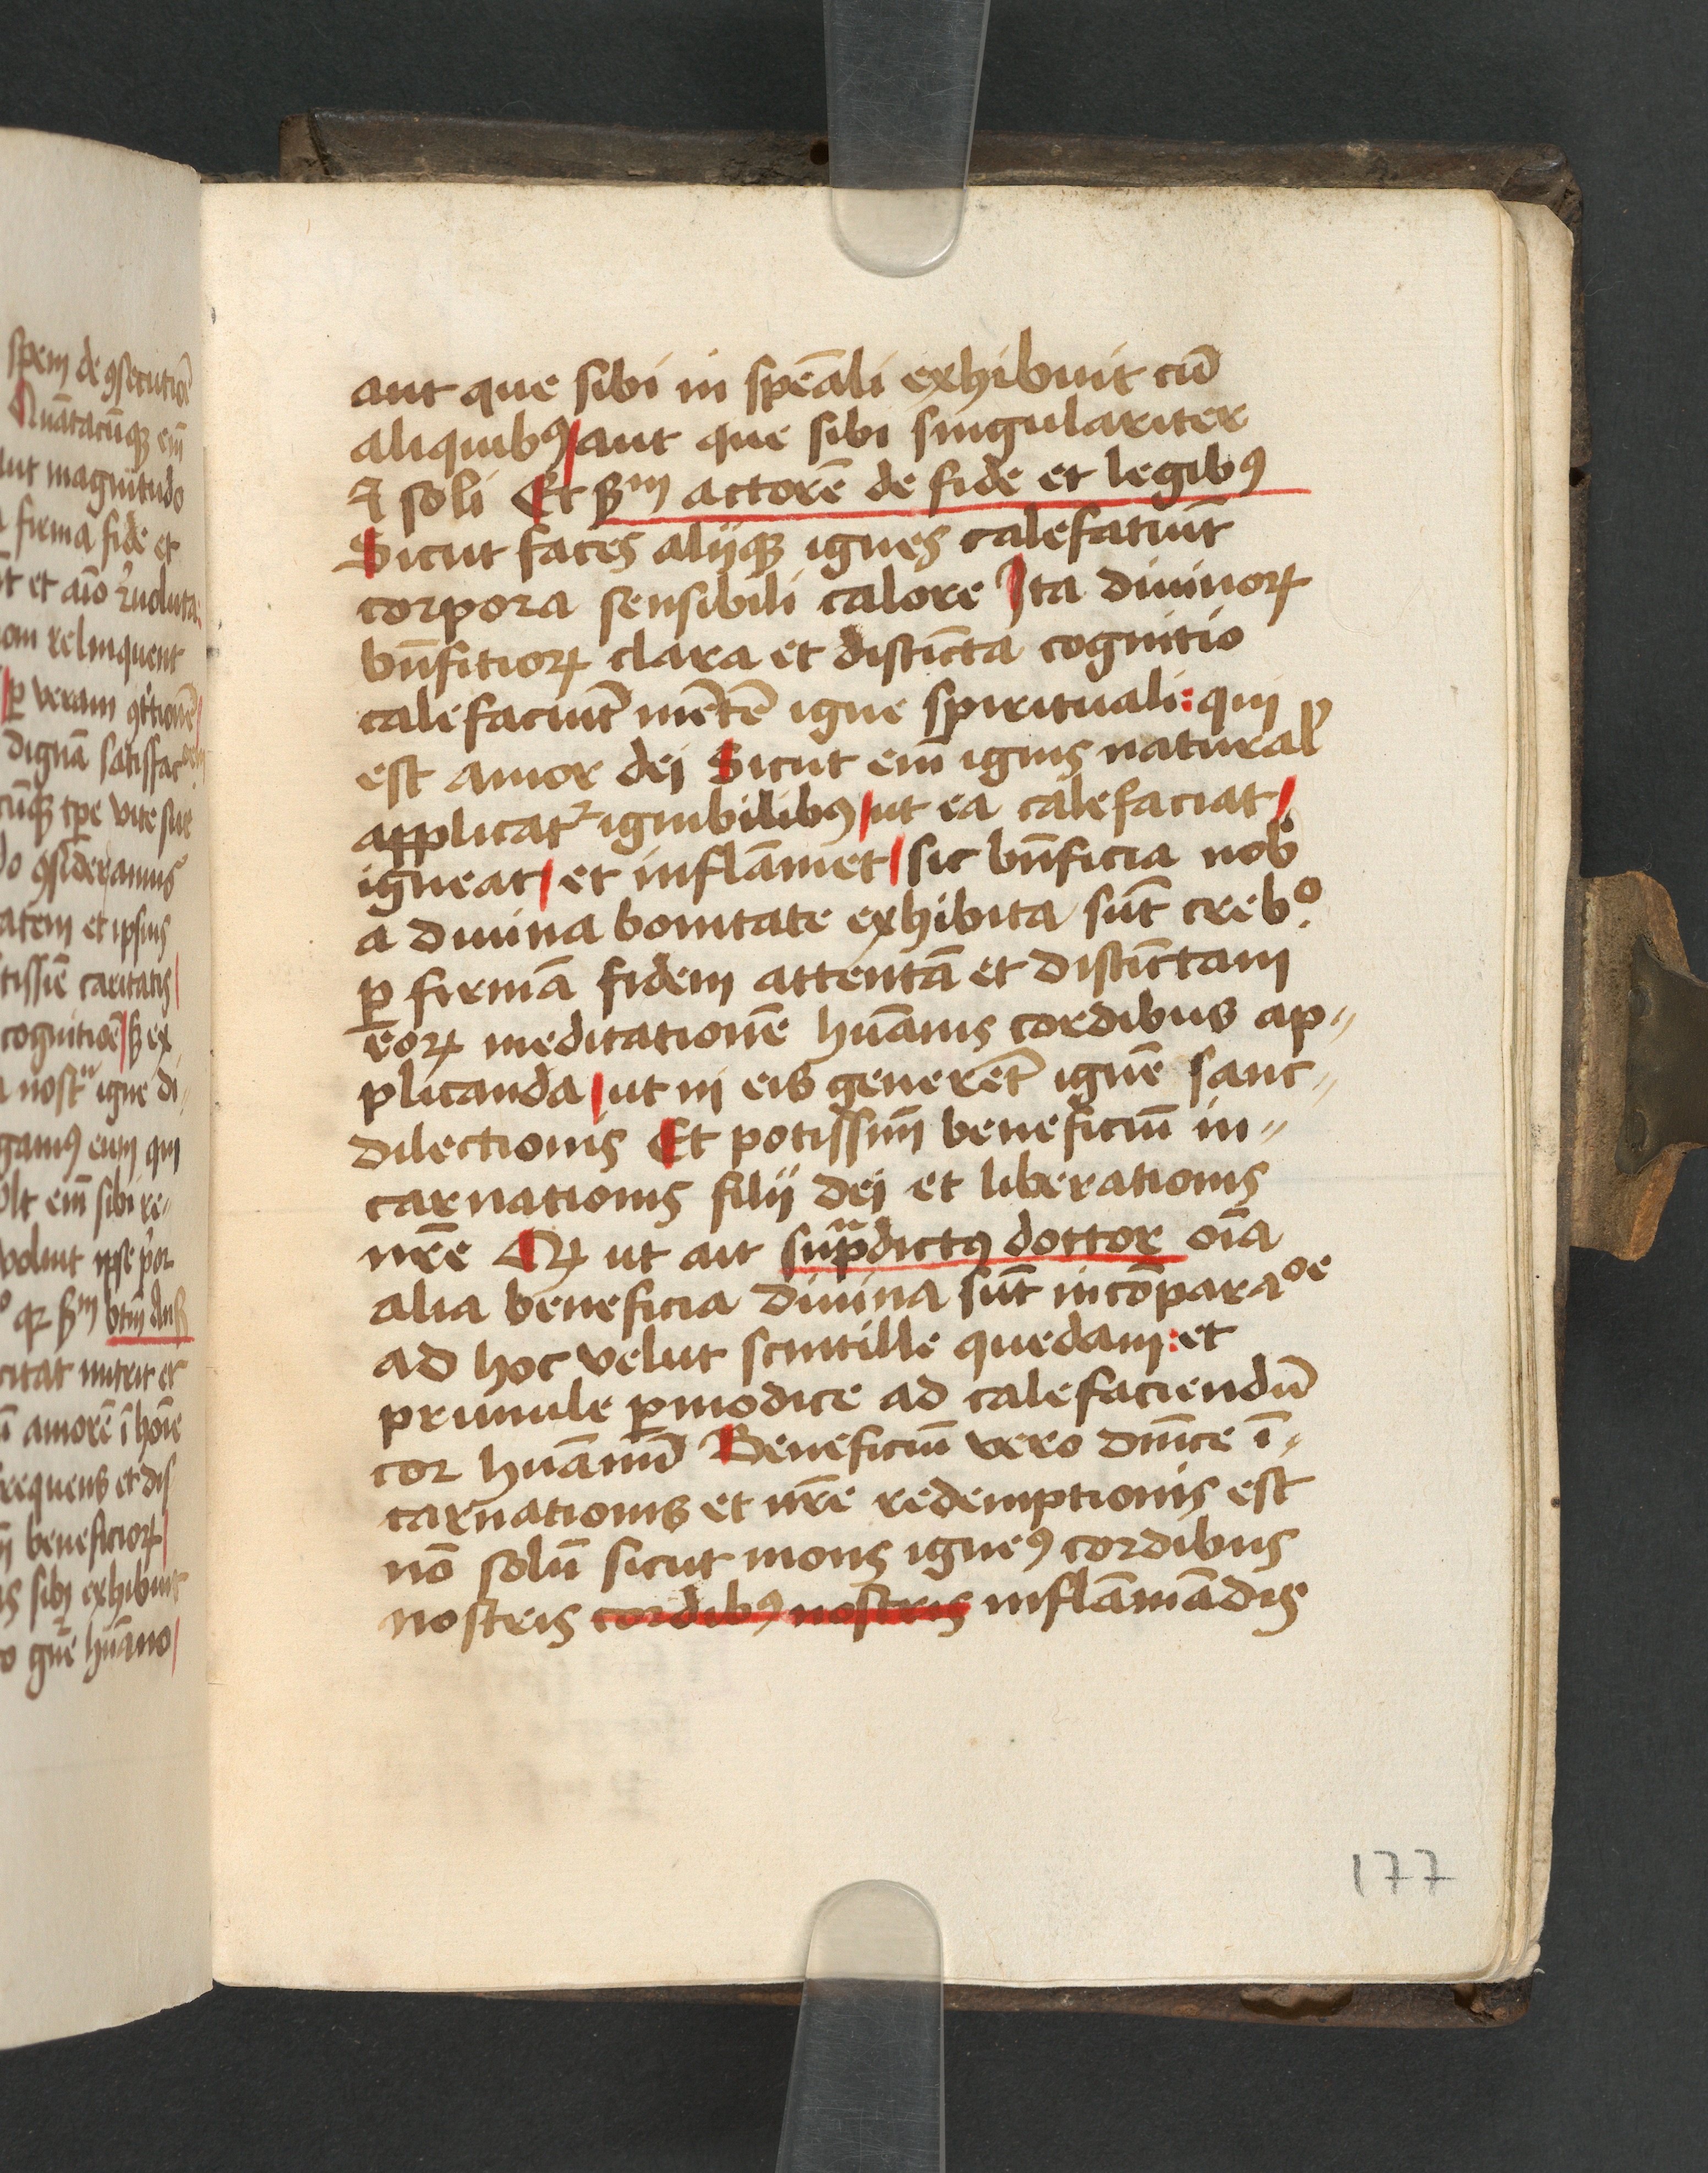 spem de ꝯsecutiōe
Quātacūqꝫ eiꝫ
aut magnitudo
firma fide et
et aīo
om relinquent
ꝑ veram
dignā satisfac
cūqꝫ tꝑe vite sue
ꝯsideramus
atem et ipsius
tissīe caritatis
cognitiōe
igne di
gamꝰ eum qui
ult eiꝫ sibi re
voluit ipse
citat nutrit et
amorē ī hoīe
frequens et dis
beneficioꝝ
sibi exhibuit
gn̄e hūano
aut que sibi in spēali exhibuit cū
aliquibꝰ aut que sibi singulariter
⁊ soli Et sꝫm actorē de fide et legibꝰ
Sicut faces alijqꝫ ignes calefatiūt
corpora sensibili calore Ita diuinoꝝ
bn̄fitioꝝ clara et distīcta cognitio
calefaciūt mētē igne spirituali: qui
est amor dei Sicut eīm ignis natural̕
applicat᷑ ignibilibꝰ ut ea calefaciat
igneat et inflāmet sic bn̄ficia nob̕
a diuina bonitate exhibita sūt crebº.
ꝑ firmā fidem attentā et distīctam
eoꝝ meditationē hūanis cordibus ap⸗
plicanda ut in eis generēt ignē sanc⸗
dilectionis Et potissīm beneficiū in⸗
carnationis filij dei et liberationis
nr̄e Qꝛ ut ait supᷓdictꝰ dottor oīa
alia beneficia diuina sūt in cōparaºᵉ
ad hoc velut scintille quedam: et
prunule ꝑmodice ad calefaciendū
cor hūanū Beneficiū vero dn̄ice ī⸗
carnationis et nr̄e redemptionis est
nō solū sicut mons igneꝰ cordibus
nostris cordibꝰ nostris inflāmādis
177